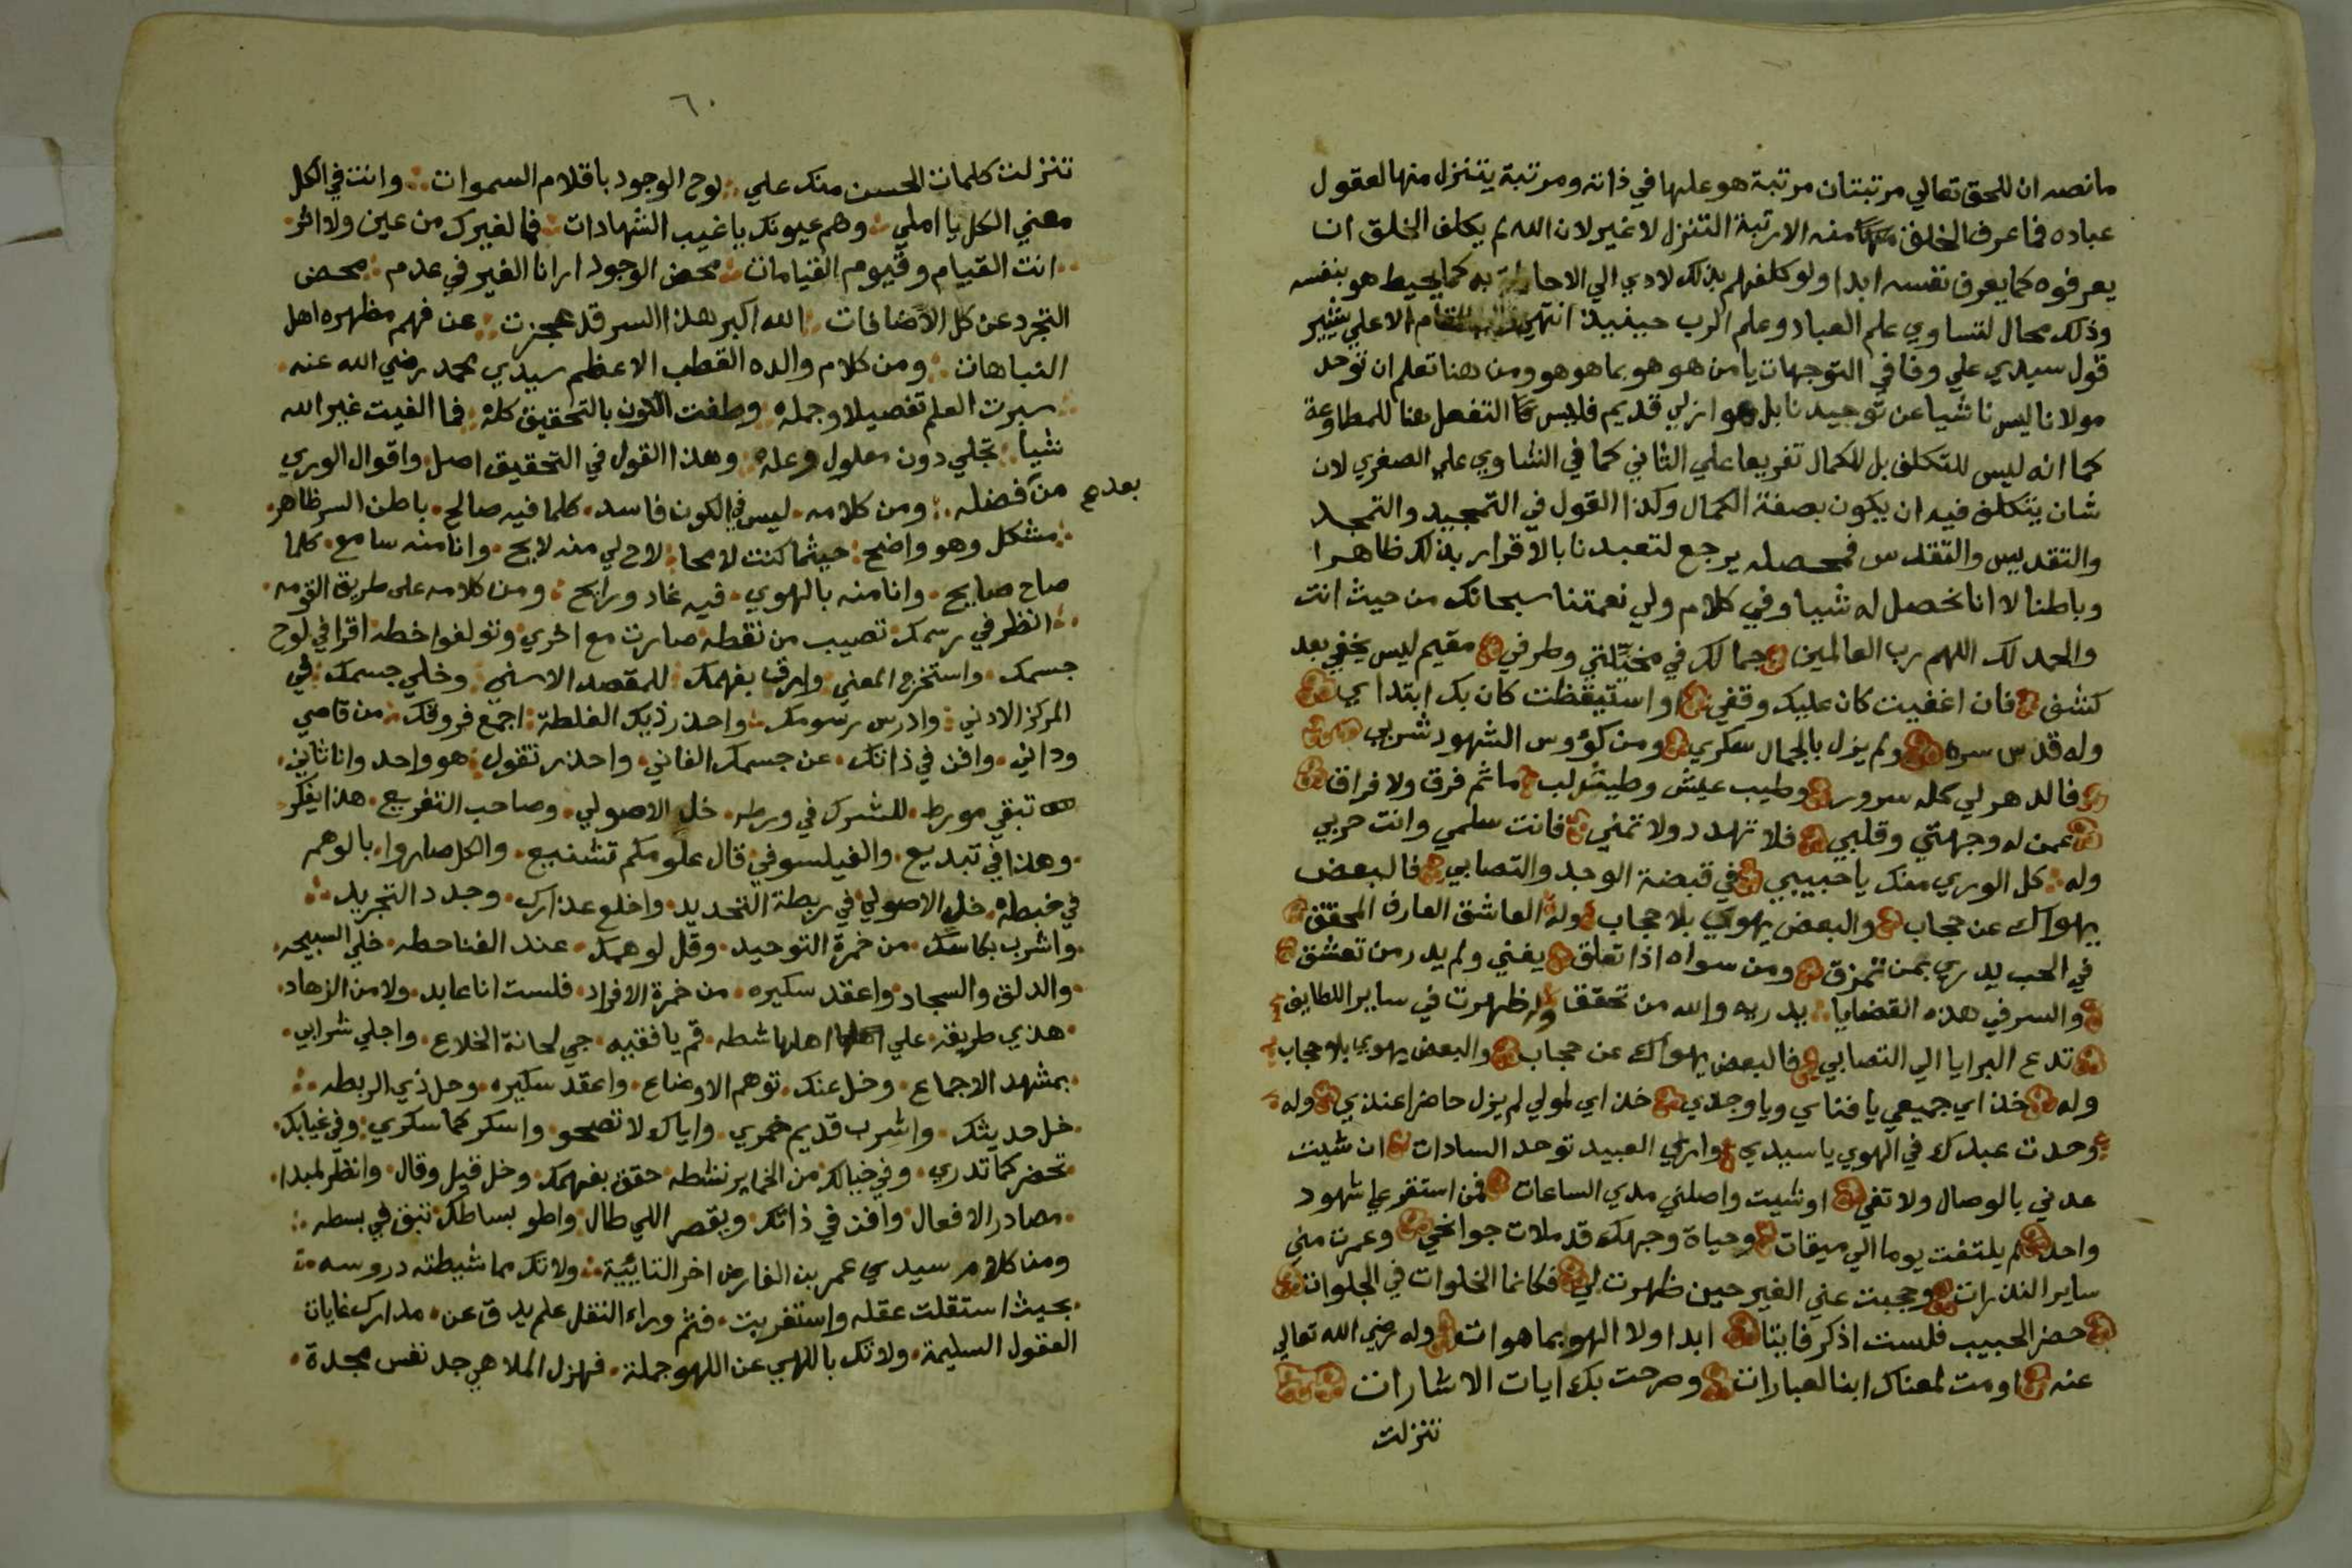 مانصه ان للحق تعالي مرتبتان مرتبة هو عليها في ذاته ومرتبة يتنزل منها لعقول
عباده فما عرف الخلق منه الا رتبة التنزل لا غير لان الله لم يكلف الخلق ان
يعرفوه كما يعرف نفسه ابدا ولو كلفهم بذلك لادي الي الاحاطة به كما يحيط هو بنفسه
وذلك محال لتساوي علم العباد وعلم الرب حينيذ انتهي المقام الاعلي يشير
قول سيدي علي وفا في التوجهات يا من هو هو بما هو هو ومن هنا تعلم ان توحد
مولانا ليس ناشيا عن توحيدنا بل هو ازلي قديم فليس التفعل هنا للمطاوعة
كما انه ليس للتكلف بل للكمال تفريعا علي الثاني كما في الشاوي علي الصغري لان
شان يتكلف فيه ان يكون بصفة الكمال وكذا القول في التمجيد والتمجد
والتقديس والتقدس فمحصله يرجع لتعبدنا بالاقرار بذلك ظاهرا
وباطنا لا انا نحصل له شيا وفي كلام ولي نعمتنا سبحانك من حيث انت
والحمد لك اللهم رب العالمين جمالك في مخيلتي وطرفي مقيم ليس يخفي بعد
كشف فان اغفيت كان عليك وقفي او استيقظت كان بك ابتداي
وله قدس سره ولم يزل بالجمال سكري ومن كؤوس الشهود شربي
فالدهر لي كله سرور وطيب عيش وطيش لب ما ثم فرق ولا فراق
عمن له وجهتي وقلبي فلا تهدد ولا تمني فانت سلمي وانت حربي
وله كل الوري منك يا حبيبي في قبضة الوجد والتصابي فالبعض
يهواك عن حجاب والبعض يهوي بلا حجاب وله العاشق العارف المحقق
في الحب يدري بمن تمزق ومن سواه اذا تعلق يفني ولم يدر من تعشق
والسر في هذه القضايا يدريه والله من تحققا وله ظهرت في ساير اللطايف
تدع البرايا الي التصابي فالبعض يهواك عن حجاب والبعض يهوي بلا حجاب
وله خذ اي جميعي يا فناي ويا وجدي خذ اي لمولي لم يزل حاضرا عندي وله
وحدت عبدك في الهوي يا سيدي واري العبيد توحد السادات ان شيت
عدني بالوصال ولا تفي او شيت واصلني مدي الساعات فمن استقر علي شهود
واحد لم يلتفت يوما الي ميقات وحياة وجهك قد ملات جوانحي وعمرت مني
ساير الذرات وحجبت عني الغير حين ظهرت لي فكانما الخلوات في الجلوات
حضر الحبيب فلست اذكر فايتا ابدا ولا الهو بما هو ات وله رضي الله تعالي
عنه اومت لمعناك ابنا العبارات وصرحت بك ايات الاشارات
تنزلت
٦٠
تنزلت كلمات الحسن منك علي لوح الوجود باقلام السموات وانت في الكل
معني الكل يا املي وهم عيونك يا غيب الشهادات فما لغيرك من عين ولا اثر
انت القيام وقيوم القيامات محض الوجود ارانا الغير في عدم محض
التجرد عن كل الاضافات الله اكبر هذا السر قد عجزت عن فهم مظهره اهل
النباهات ومن كلام والده القطب الاعظم سيدي محمد رضي الله عنه
سبرت العلم تفصيلا وجمله وطفت الكون بالتحقيق كله فما الفيت غير الله
شيا تجلي دون معلول وعله وهذا القول في التحقيق اصل واقوال الوري
من فضله ومن كلامه ليس في الكون فاسد كلما فيه صالح باطن السر ظاهر
بعد
مشكل وهو واضح حيثما كنت لامحا لاح لي منه لايح وانا منه سامع كلما
صاح صايح وانا منه بالهوي فيه غاد ورايح ومن كلامه علي طريق القومه
انظر في رسمك تصيب من نقطه صارت مع اخري وتولفوا خطه اقرا في لوح
جسمك واستخرج المعني وارقا بفهمك للمقصد الاسني وخلي جسمك في
المركز الادني وادرس رسومك واحذر ذيك الغلطة اجمع فروقك من قاصي
وداني وافن في ذاتك عن جسمك الفاني واحذر تقول هو واحد وانا ثاني
تبقي مورط للشرك في ورطه خل الاصولي وصاحب التفريع هذا يفكر
وهذا في تبديع والفيلسوفي قال علومكم تشنيع والكل صاروا بالوهم
في خبطه خل الاصولي في ربطة التحديد واخلع عذارك وجدد التجريد
واشرب بكاسك من خمرة التوحيد وقل لوهمك عند الفنا حطه خلي السبحه
والدلق والسجاد واعقد سكيره من خمرة الافراد فلست انا عابد ولا من الزهاد
هذي طريقة علي اهلها شطه قم يا فقيه جي لحانة الخلاع واجلي شرابي
بمشهد الاجماع وخل عنك توهم الاوضاع واعقد سكيره وحل ذي الربطه
خل حديثك واشرب قديم خمري واياك لا تصحو واسكر كما سكري وفي غيابك
تحضر كما تدري وفي خيالك من الخماير نشطه حقق بفهمك وخل قيل وقال وانظر لمبدا
مصادر الافعال وافن في ذاتك ويقصر اللي طال واطو بساطك تبق في بسطه
ومن كلام سيدي عمر بن الفارض اخر التايية ولا تك مما شيطته دروسه
بحيث استقلت عقله واستفزيت فثم وراء النقل علم يدق عن مدارك غايات
العقول السليمة ولا تك باللهي عن اللهو جملة فهزل الملاهي جد نفس مجدة